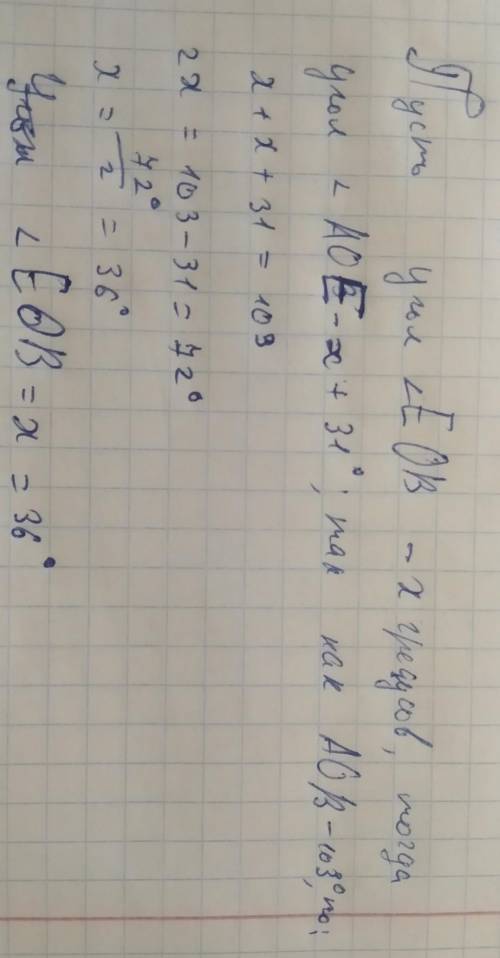 Пусть угол <EOB - x градусов, тогда
угол < AOE - x + 31°; так как AOB - 103°, то:
x + x + 31 = 103
2x = 103 - 31 = 72°
x = 72°/2 = 36°
Угол < EOB = x = 36°